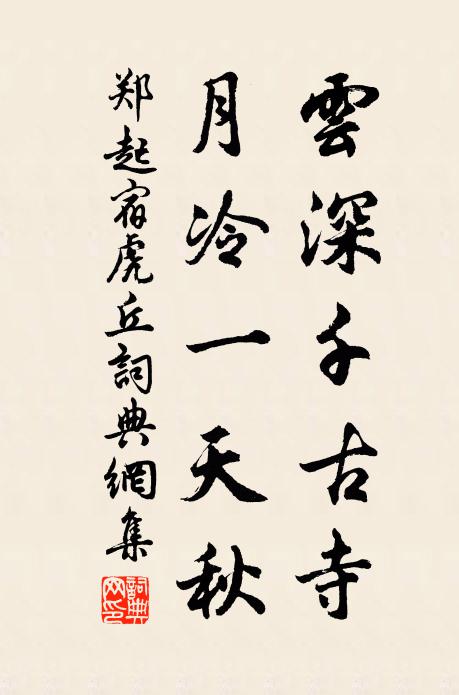 雲深千古寺
月冷一天秋
郑起宿虎丘詞典網集
詞典網印